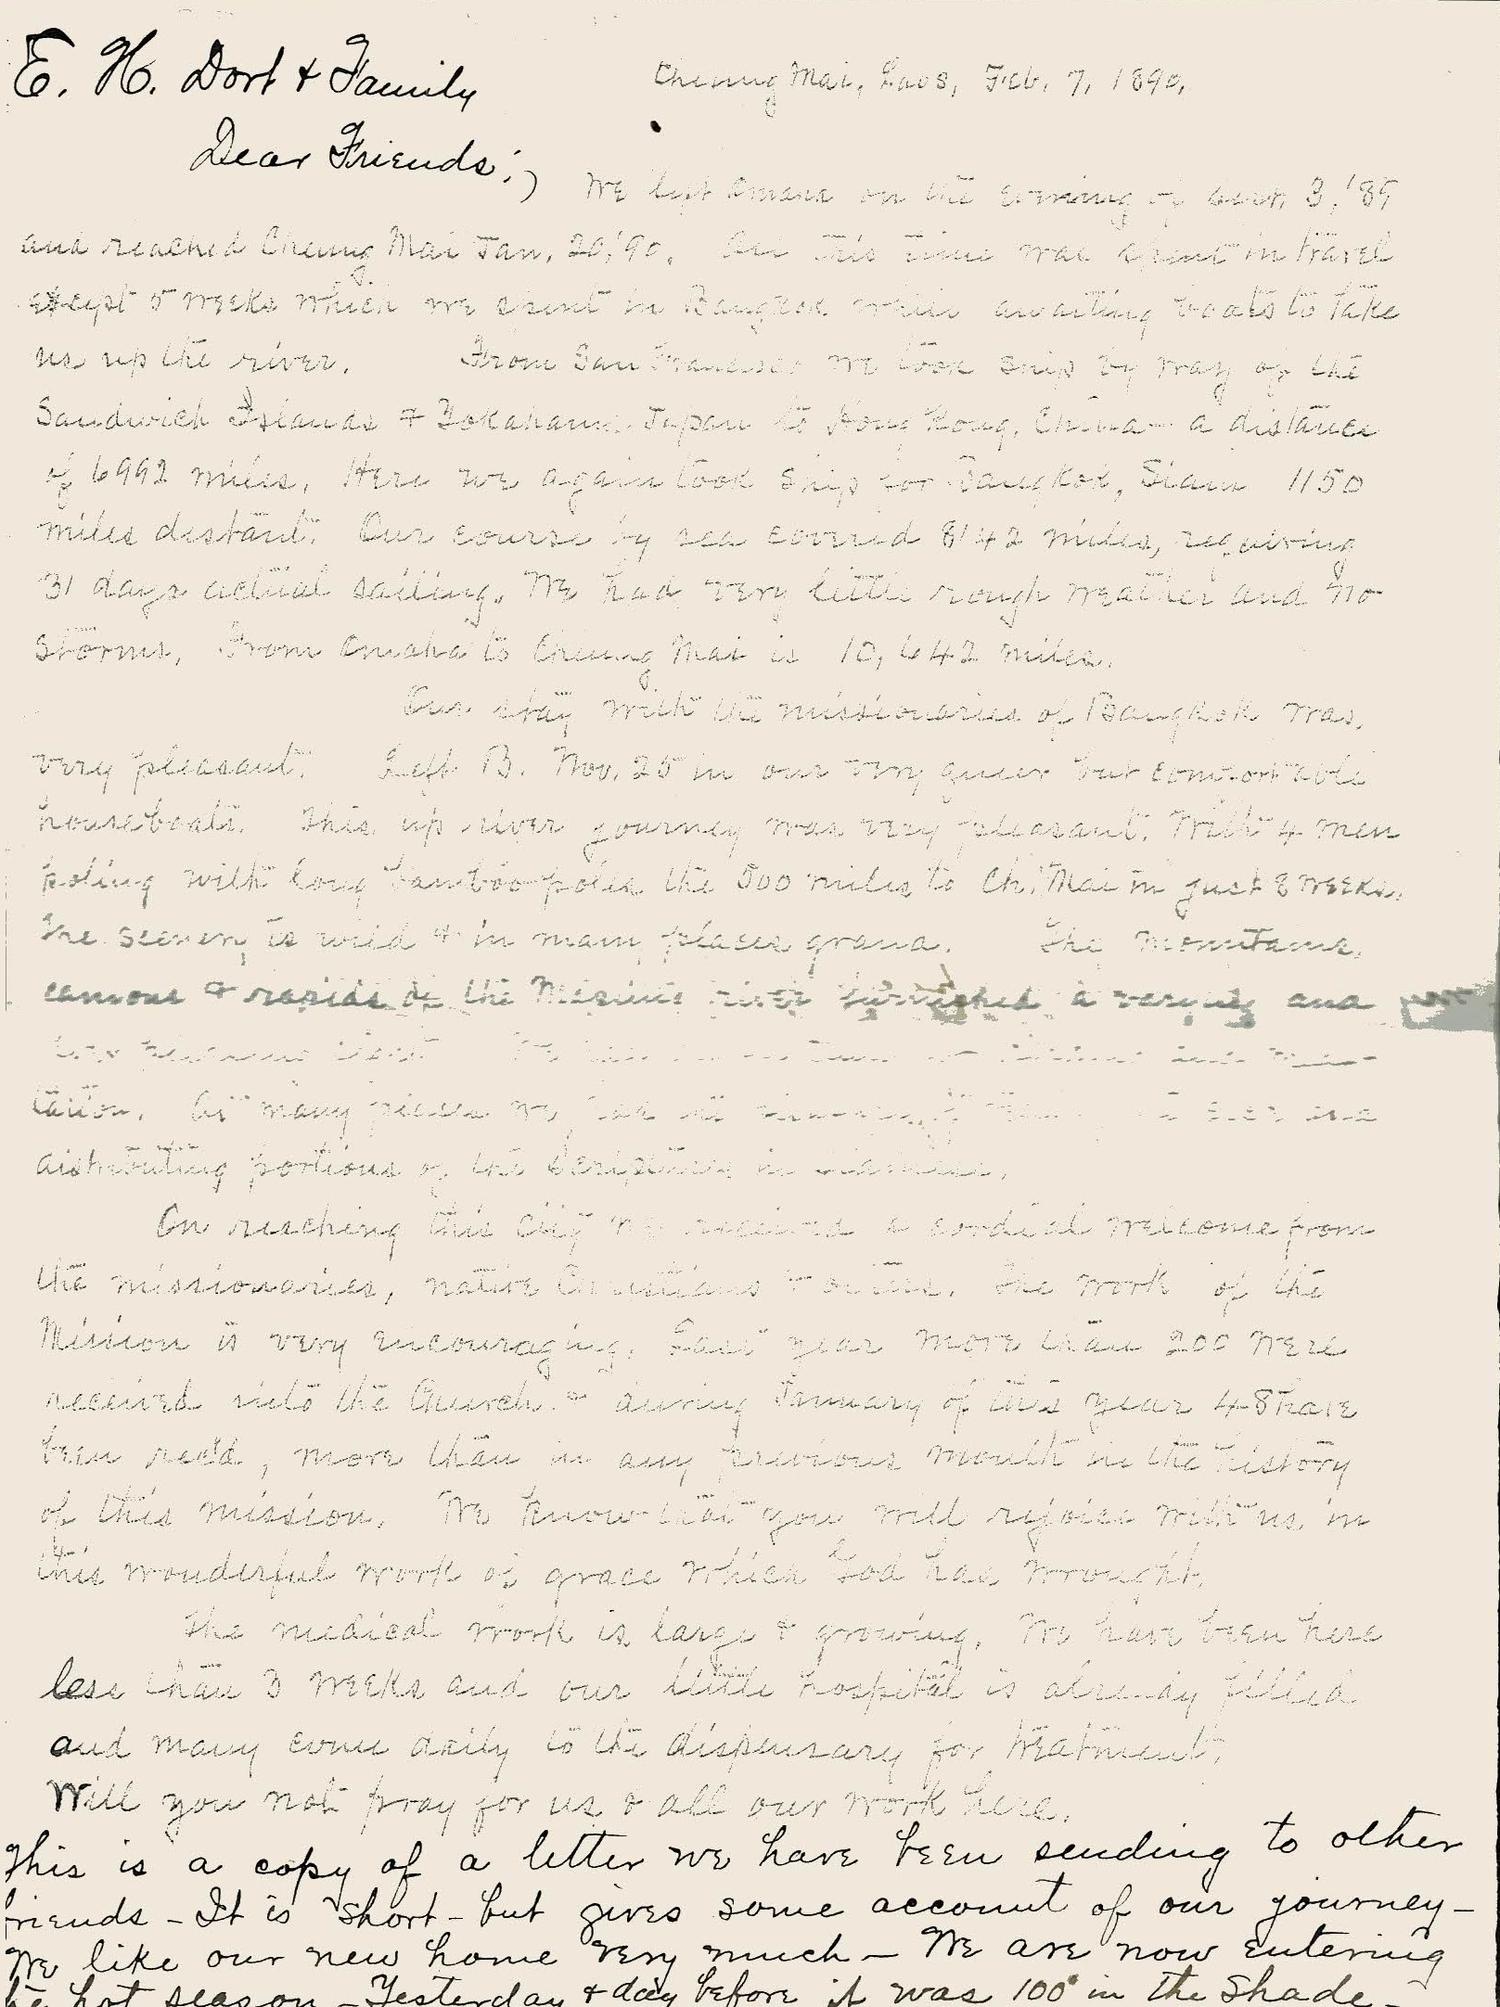 E. H. Dort & Family
Cheung Mai, Laos, Feb. 7, 1890.
Dear Friends;
We left Omaha on the evening of Sept. 3, '89
and reached Cheung Mai Jan. 20, '90. All this time was spent in travel
except 5 weeks which we spent in Bangkok while awaiting boats to take
us up the river. From San Francisco we took ship by way of the
Sandwich Islands & Yokahama Japan to Hong Kong, China - a distance
of 6992 miles. Here we again took ship for Bangkok, Siam 1150
miles distant. Our course by sea covered 8142 miles, requiring
31 days actual sailing. We had very little rough weather and no
storms. From Omaha to Cheung Mai is 10,642 miles.
Our stay with the missionaries of Bangkok was
very pleasant. Left B. Nov. 25 in our very queer but comfortable
houseboats. This up river journey was very pleasant. With 4 men
poling with long bamboo poles the 500 miles to Ch. Mai in just 8 weeks.
The scenery is wild & in many places grand. The mountains,
canons & rapids of the river furnished a varying and
tation. At many places we had
distributing portions of the Scripture in Siamese.
On reaching this city we received a cordial welcome from
the missionaries, native Christians & others. The work of the
Mission is very encouraging. Last year more than 200 were
received into the Church & during January of this year 48 have
been rec'd, more than in any previous month in the history
of this mission. We know that you will rejoice with us in
this wonderful work of grace which God has wrought.
The medical work is large & growing. We have been here
less than 3 weeks and our little hospital is already filled
and many come daily to the dispensary for treatment.
Will you not pray for us & all our work here.
This is a copy of a letter we have been sending to other
friends - It is short - but gives some account of our journey -
We like our new home very much - We are now entering
the hot season - Yesterday & day before it was 100° in the shade -